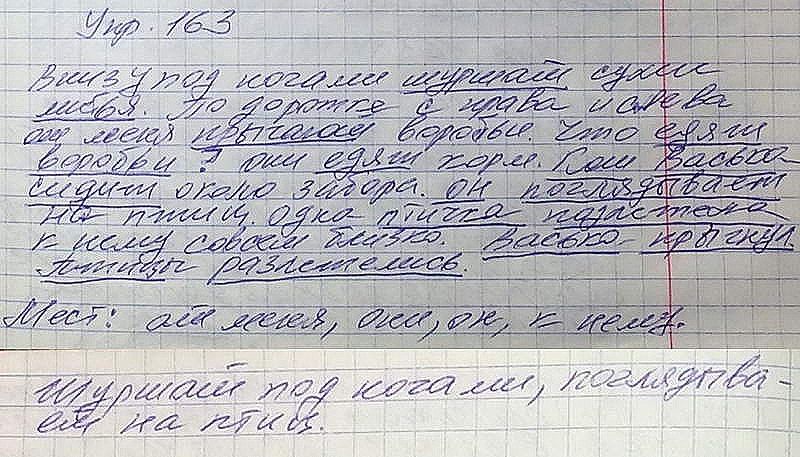 Упр. 163
Внизу под ногами шуршат сухии
листья. По дорожке с права и слева
от меня прыгают воробьи. Что едят
воробьи? они едят корм. Кот Васько
сидит около забора. он поглядывает
на птиц. одна птичка
к нему совсем близко. Васько прыгнул.
птицы разлетелись.
Мест: от меня, они, он, к нему.
Шуршат под ногами, поглядыва-
ет на птиц.